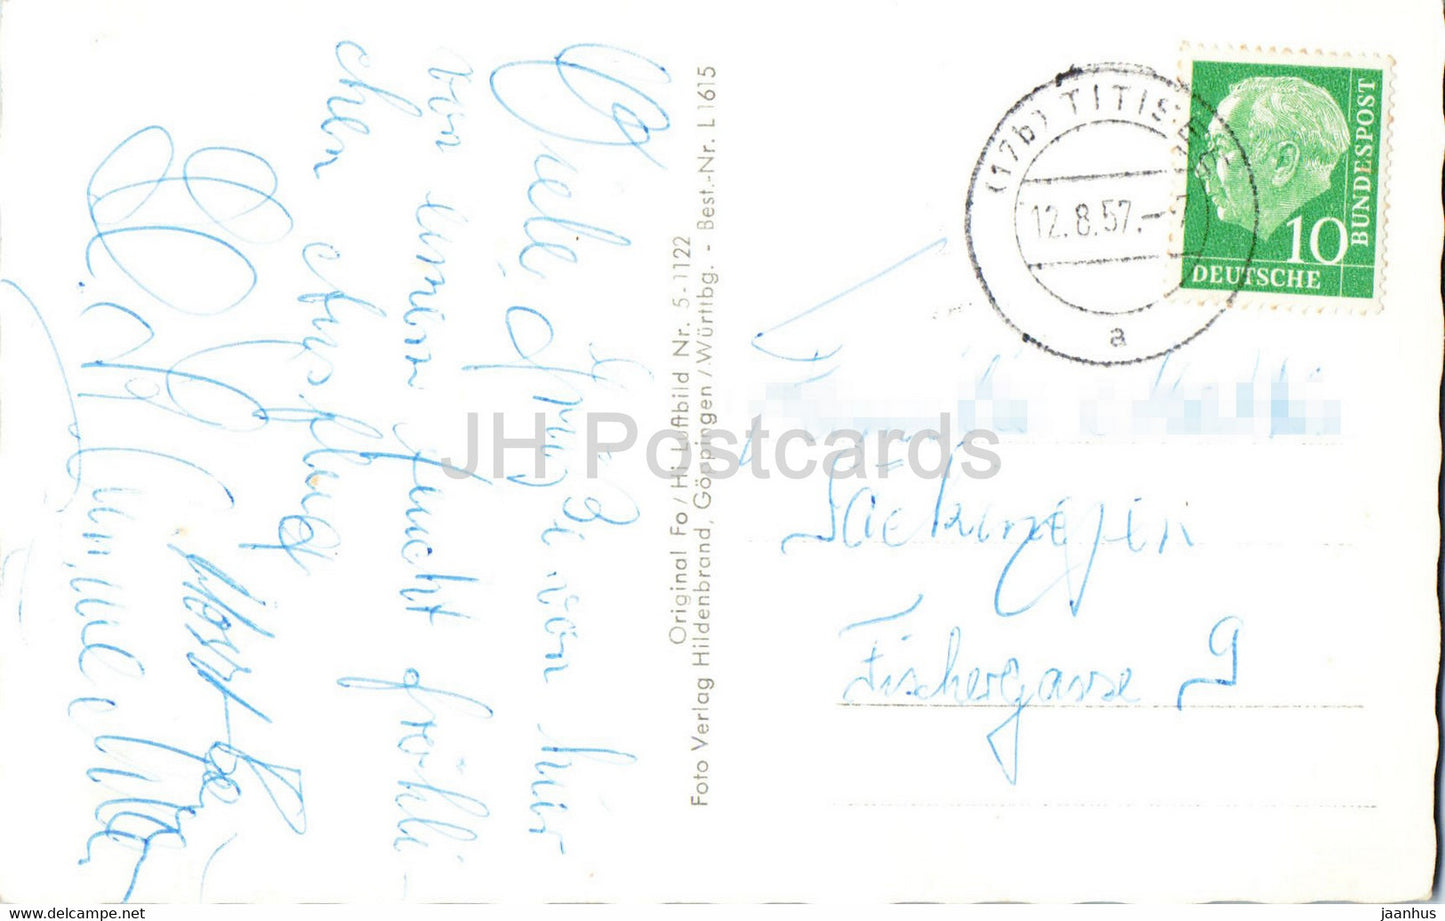 Viele Grüße von hier
von einem feucht fröhli-
chen Ausflug
Horst
Original Fo / Hi Luftbild Nr. 5-1122
Foto Verlag Hildenbrand, Göppingen / Württbg. - Best.-Nr. L 1615
(17b) TITISEE
12.8.57.
a
10
DEUTSCHE
BUNDESPOST
Familie
Säckingen
Fischergasse 9
JH Postcards
https://www.delcampe.net
jaanhus